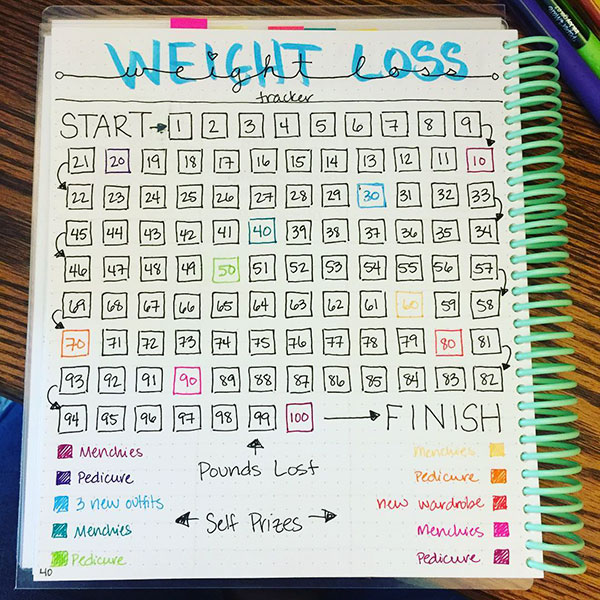 WEIGHT LOSS
weight loss
tracker
START 1 2 3 4 5 6 7 8 9
21 20 19 18 17 16 15 14 13 12 11 10
22 23 24 25 26 27 28 29 30 31 32 33
45 44 43 42 41 40 39 38 37 36 35 34
46 47 48 49 50 51 52 53 54 55 56 57
69 68 67 66 65 64 63 62 61 60 59 58
70 71 72 73 74 75 76 77 78 79 80 81
93 92 91 90 89 88 87 86 85 84 83 82
94 95 96 97 98 99 100 FINISH
Pounds Lost
Self Prizes
Menchies
Pedicure
3 new outfits
Menchies
Pedicure
Menchies
Pedicure
new wardrobe
Menchies
Pedicure
40